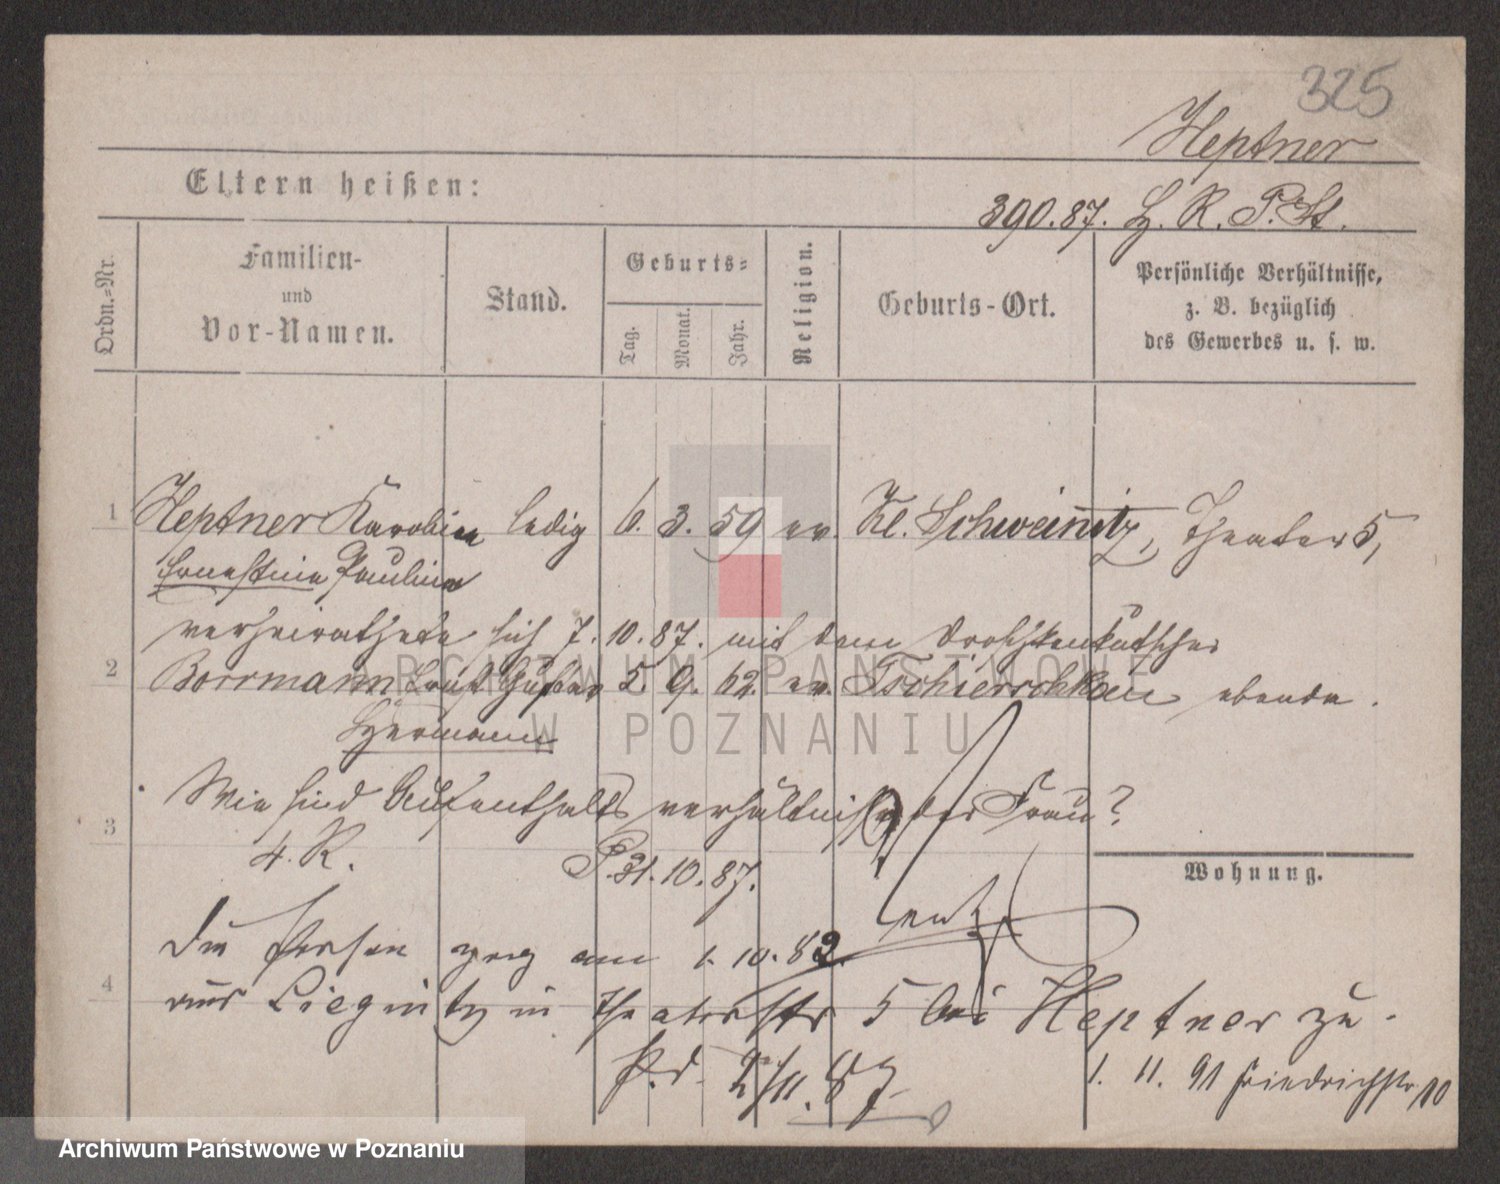 325
Heptner
Eltern heißen:
390.87. H. R. P. St.
Ordn.-Nr.
Familien-
und
Vor-Namen.
Stand.
Geburts-
Tag.
Monat.
Jahr.
Religion.
Geburts-Ort.
Persönliche Verhältnisse,
z. B. bezüglich
des Gewerbes u. s. w.
1 Heptner Karoline ledig 6. 3. 59 ev. Kl. Schweinitz, Theater 5,
Ernestine Pauline
verheirathete sich 7. 10. 87. mit dem Droschkenkutscher
2 Borrmann Ernst Gustav 5. 9. 62. ev. Tschierschkau ebenda.
Hermann
Wie sind Aufenthalts verhältnisse der Frau?
3
4. R. P. 31. 10. 87.
Wohnung.
Die Person zog am 1. 10. 82.
4 aus Liegnitz in Theaterstr 5 bei Heptner zu.
2/11. 87
1. 11. 91 Friedrichstr 10
ARCHIWUM PAŃSTWOWE
W POZNANIU
Archiwum Państwowe w Poznaniu